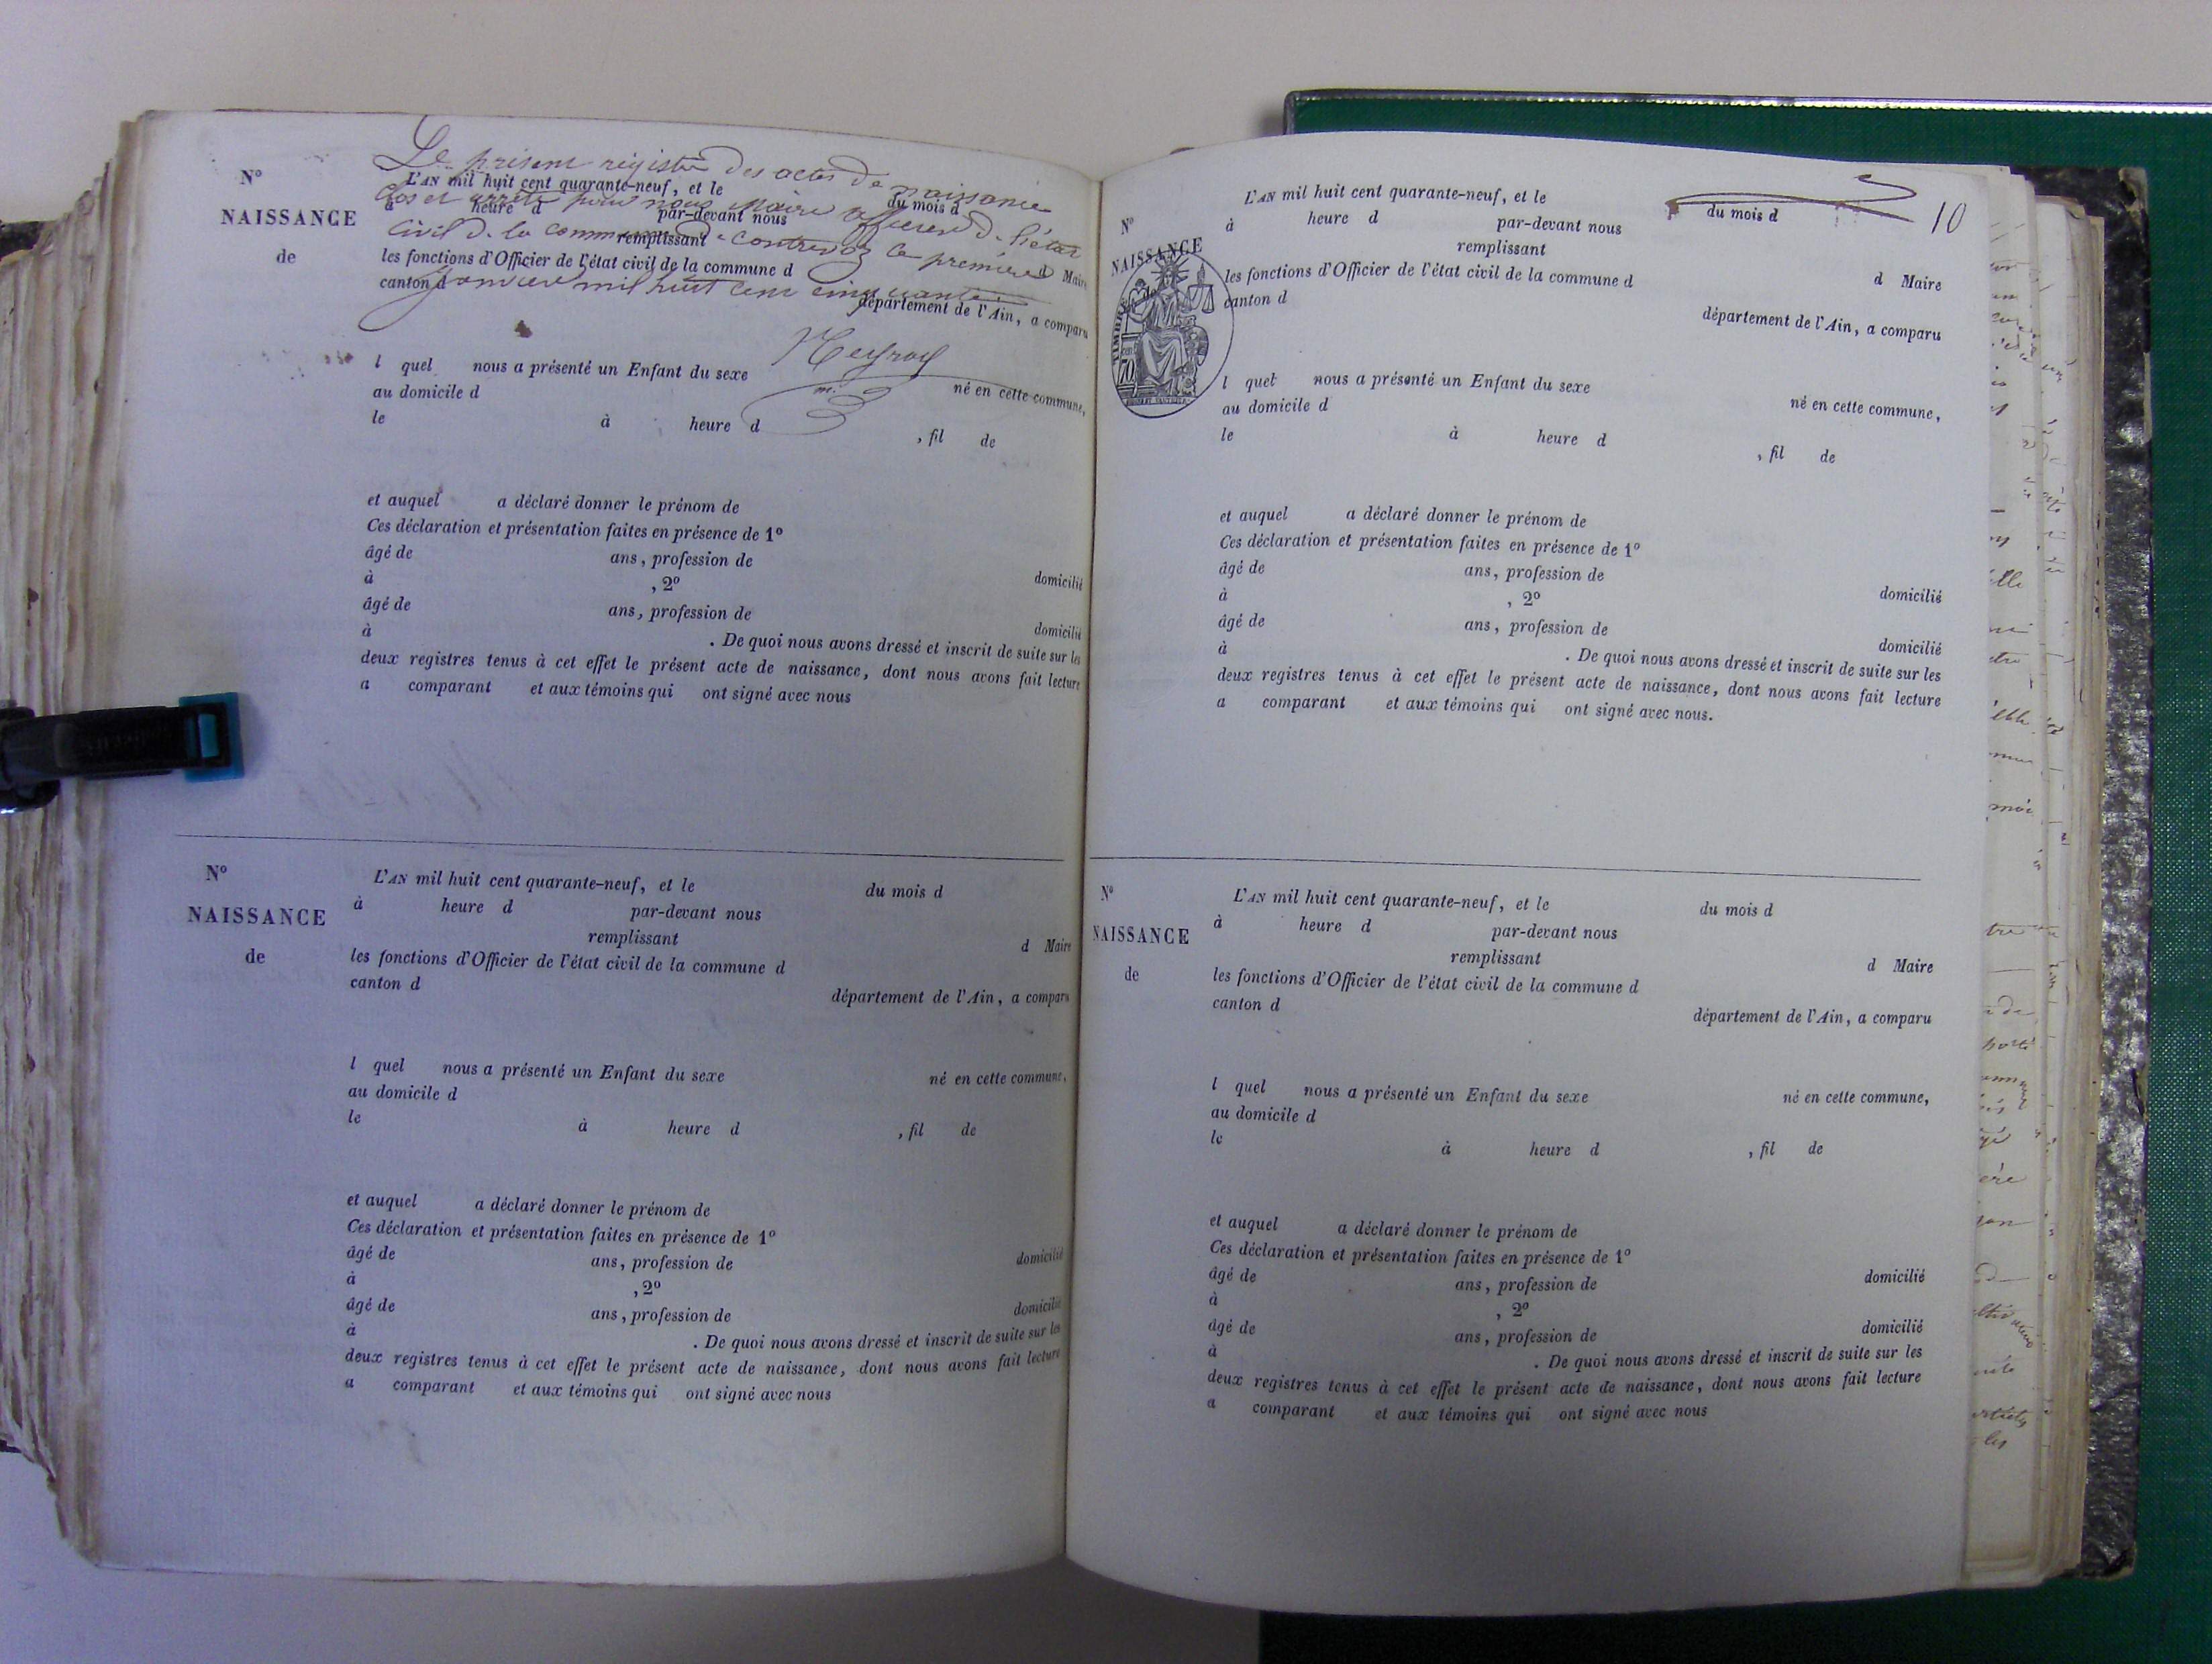 Le présent registre des actes de naissance
clos et arrêté pour nous Maire officier de l'état
civil de la commune de Contrevoz le premier
Janvier mil huit cent cinquante.
Nº
NAISSANCE
de
L'AN mil huit cent quarante-neuf, et le du mois d
à heure d par-devant nous
remplissant d Maire
les fonctions d'Officier de l'état civil de la commune d
canton d département de l'Ain, a comparu
l quel nous a présenté un Enfant du sexe né en cette commune,
au domicile d
le à heure d , fil de
et auquel a déclaré donner le prénom de
Ces déclaration et présentation faites en présence de 1º
âgé de ans, profession de domicilié
à , 2º
âgé de ans, profession de domicilié
à . De quoi nous avons dressé et inscrit de suite sur les
deux registres tenus à cet effet le présent acte de naissance, dont nous avons fait lecture
a comparant et aux témoins qui ont signé avec nous
Nº
NAISSANCE
de
L'AN mil huit cent quarante-neuf, et le du mois d
à heure d par-devant nous
remplissant d Maire
les fonctions d'Officier de l'état civil de la commune d
canton d département de l'Ain, a comparu
l quel nous a présenté un Enfant du sexe né en cette commune,
au domicile d
le à heure d , fil de
et auquel a déclaré donner le prénom de
Ces déclaration et présentation faites en présence de 1º
âgé de ans, profession de domicilié
à , 2º
âgé de ans, profession de domicilié
à . De quoi nous avons dressé et inscrit de suite sur les
deux registres tenus à cet effet le présent acte de naissance, dont nous avons fait lecture
a comparant et aux témoins qui ont signé avec nous
10
Nº
NAISSANCE
de
L'AN mil huit cent quarante-neuf, et le du mois d
à heure d par-devant nous
remplissant d Maire
les fonctions d'Officier de l'état civil de la commune d
canton d département de l'Ain, a comparu
l quel nous a présenté un Enfant du sexe né en cette commune,
au domicile d
le à heure d , fil de
et auquel a déclaré donner le prénom de
Ces déclaration et présentation faites en présence de 1º
âgé de ans, profession de domicilié
à , 2º
âgé de ans, profession de domicilié
à . De quoi nous avons dressé et inscrit de suite sur les
deux registres tenus à cet effet le présent acte de naissance, dont nous avons fait lecture
a comparant et aux témoins qui ont signé avec nous.
Nº
NAISSANCE
de
L'AN mil huit cent quarante-neuf, et le du mois d
à heure d par-devant nous
remplissant d Maire
les fonctions d'Officier de l'état civil de la commune d
canton d département de l'Ain, a comparu
l quel nous a présenté un Enfant du sexe né en cette commune,
au domicile d
le à heure d , fil de
et auquel a déclaré donner le prénom de
Ces déclaration et présentation faites en présence de 1º
âgé de ans, profession de domicilié
à , 2º
âgé de ans, profession de domicilié
à . De quoi nous avons dressé et inscrit de suite sur les
deux registres tenus à cet effet le présent acte de naissance, dont nous avons fait lecture
a comparant et aux témoins qui ont signé avec nous